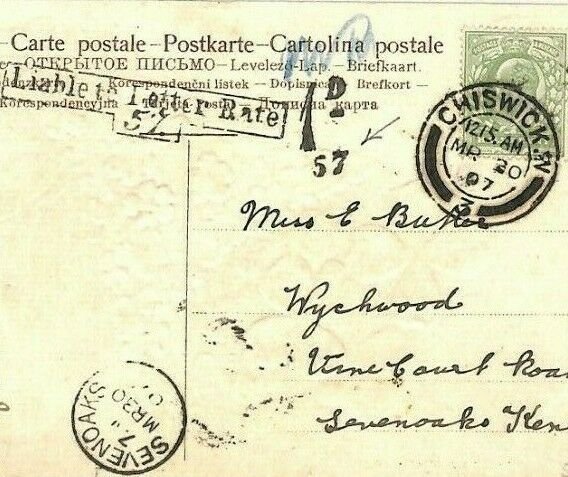 Carte postale - Postkarte - Cartolina postale
ОТКРЫТОЕ ПИСЬМО - Levelező-Lap. - Briefkaart.
Korespondenční listek - Dopisnica Brefkort -
Korespondencyjna Дописна карта
Liable to Letter Rate
52
1D
57
CHISWICK. W
12.15. AM
MR 20
07
3
Miss E Butler
Wychwood
Vine Court Road
Sevenoaks Ken
SEVENOAKS
MR 20
07